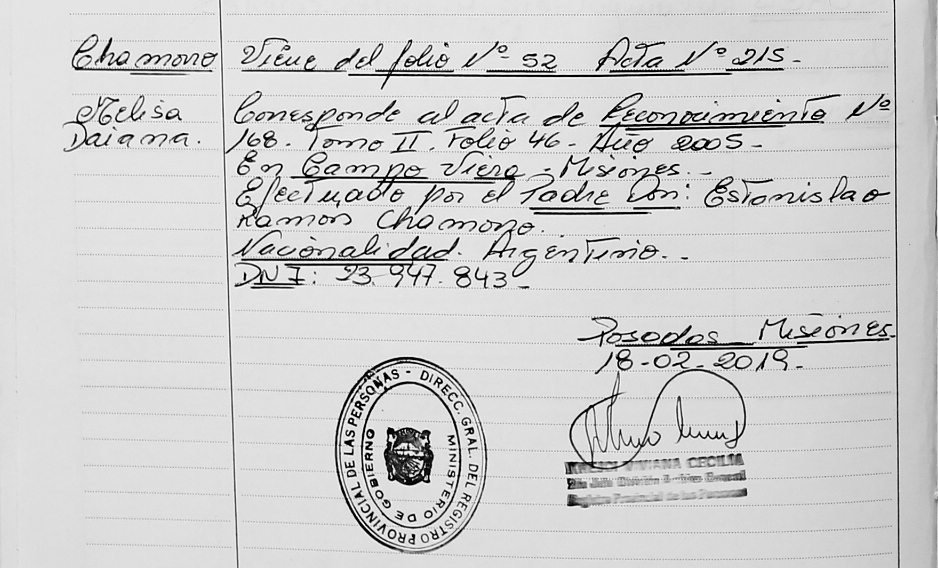 Chamorro
Viene del folio Nº 52 Acta Nº 215.-
Melisa
Daiana.
Corresponde al acta de Reconocimiento Nº
168. Tomo II. Folio 46- Año 2005-
En Campo Viera - Misiones.-
Efectuado por el Padre Don: Estanislao
Ramon Chamorro.
Nacionalidad. Argentino.-
DNI: 23.947.843-
Posadas Misiones.
18-02-2019.-
DIRECC. GRAL. DEL REGISTRO PROVINCIAL DE LAS PERSONAS -
MINISTERIO DE GOBIERNO
VIVIANA CECILIA
Registro Provincial de las Personas